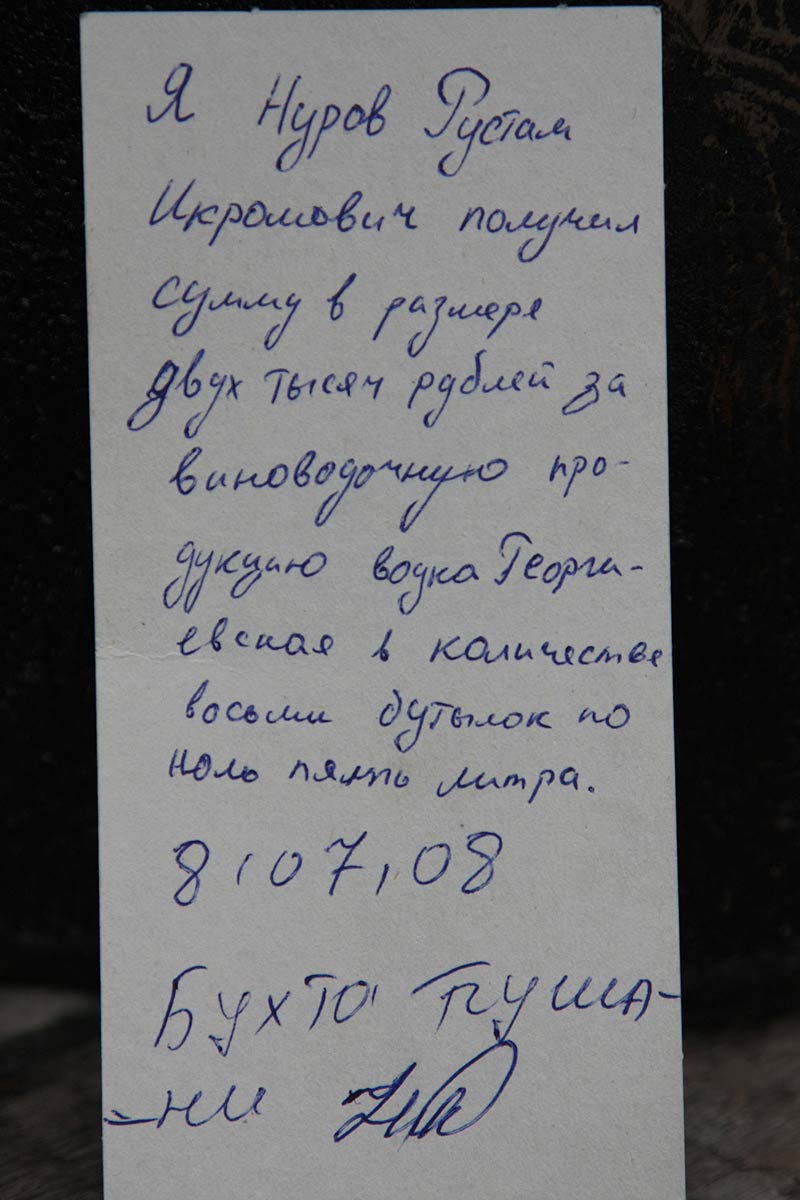 Я Нуров Рустам
Икромович получил
сумму в размере
двух тысяч рублей за
виноводочную про-
дукцию водка Георги-
евская в количестве
восьми бутылок по
ноль пять литра.
8,07,08
Бухта Пуша-
-ни